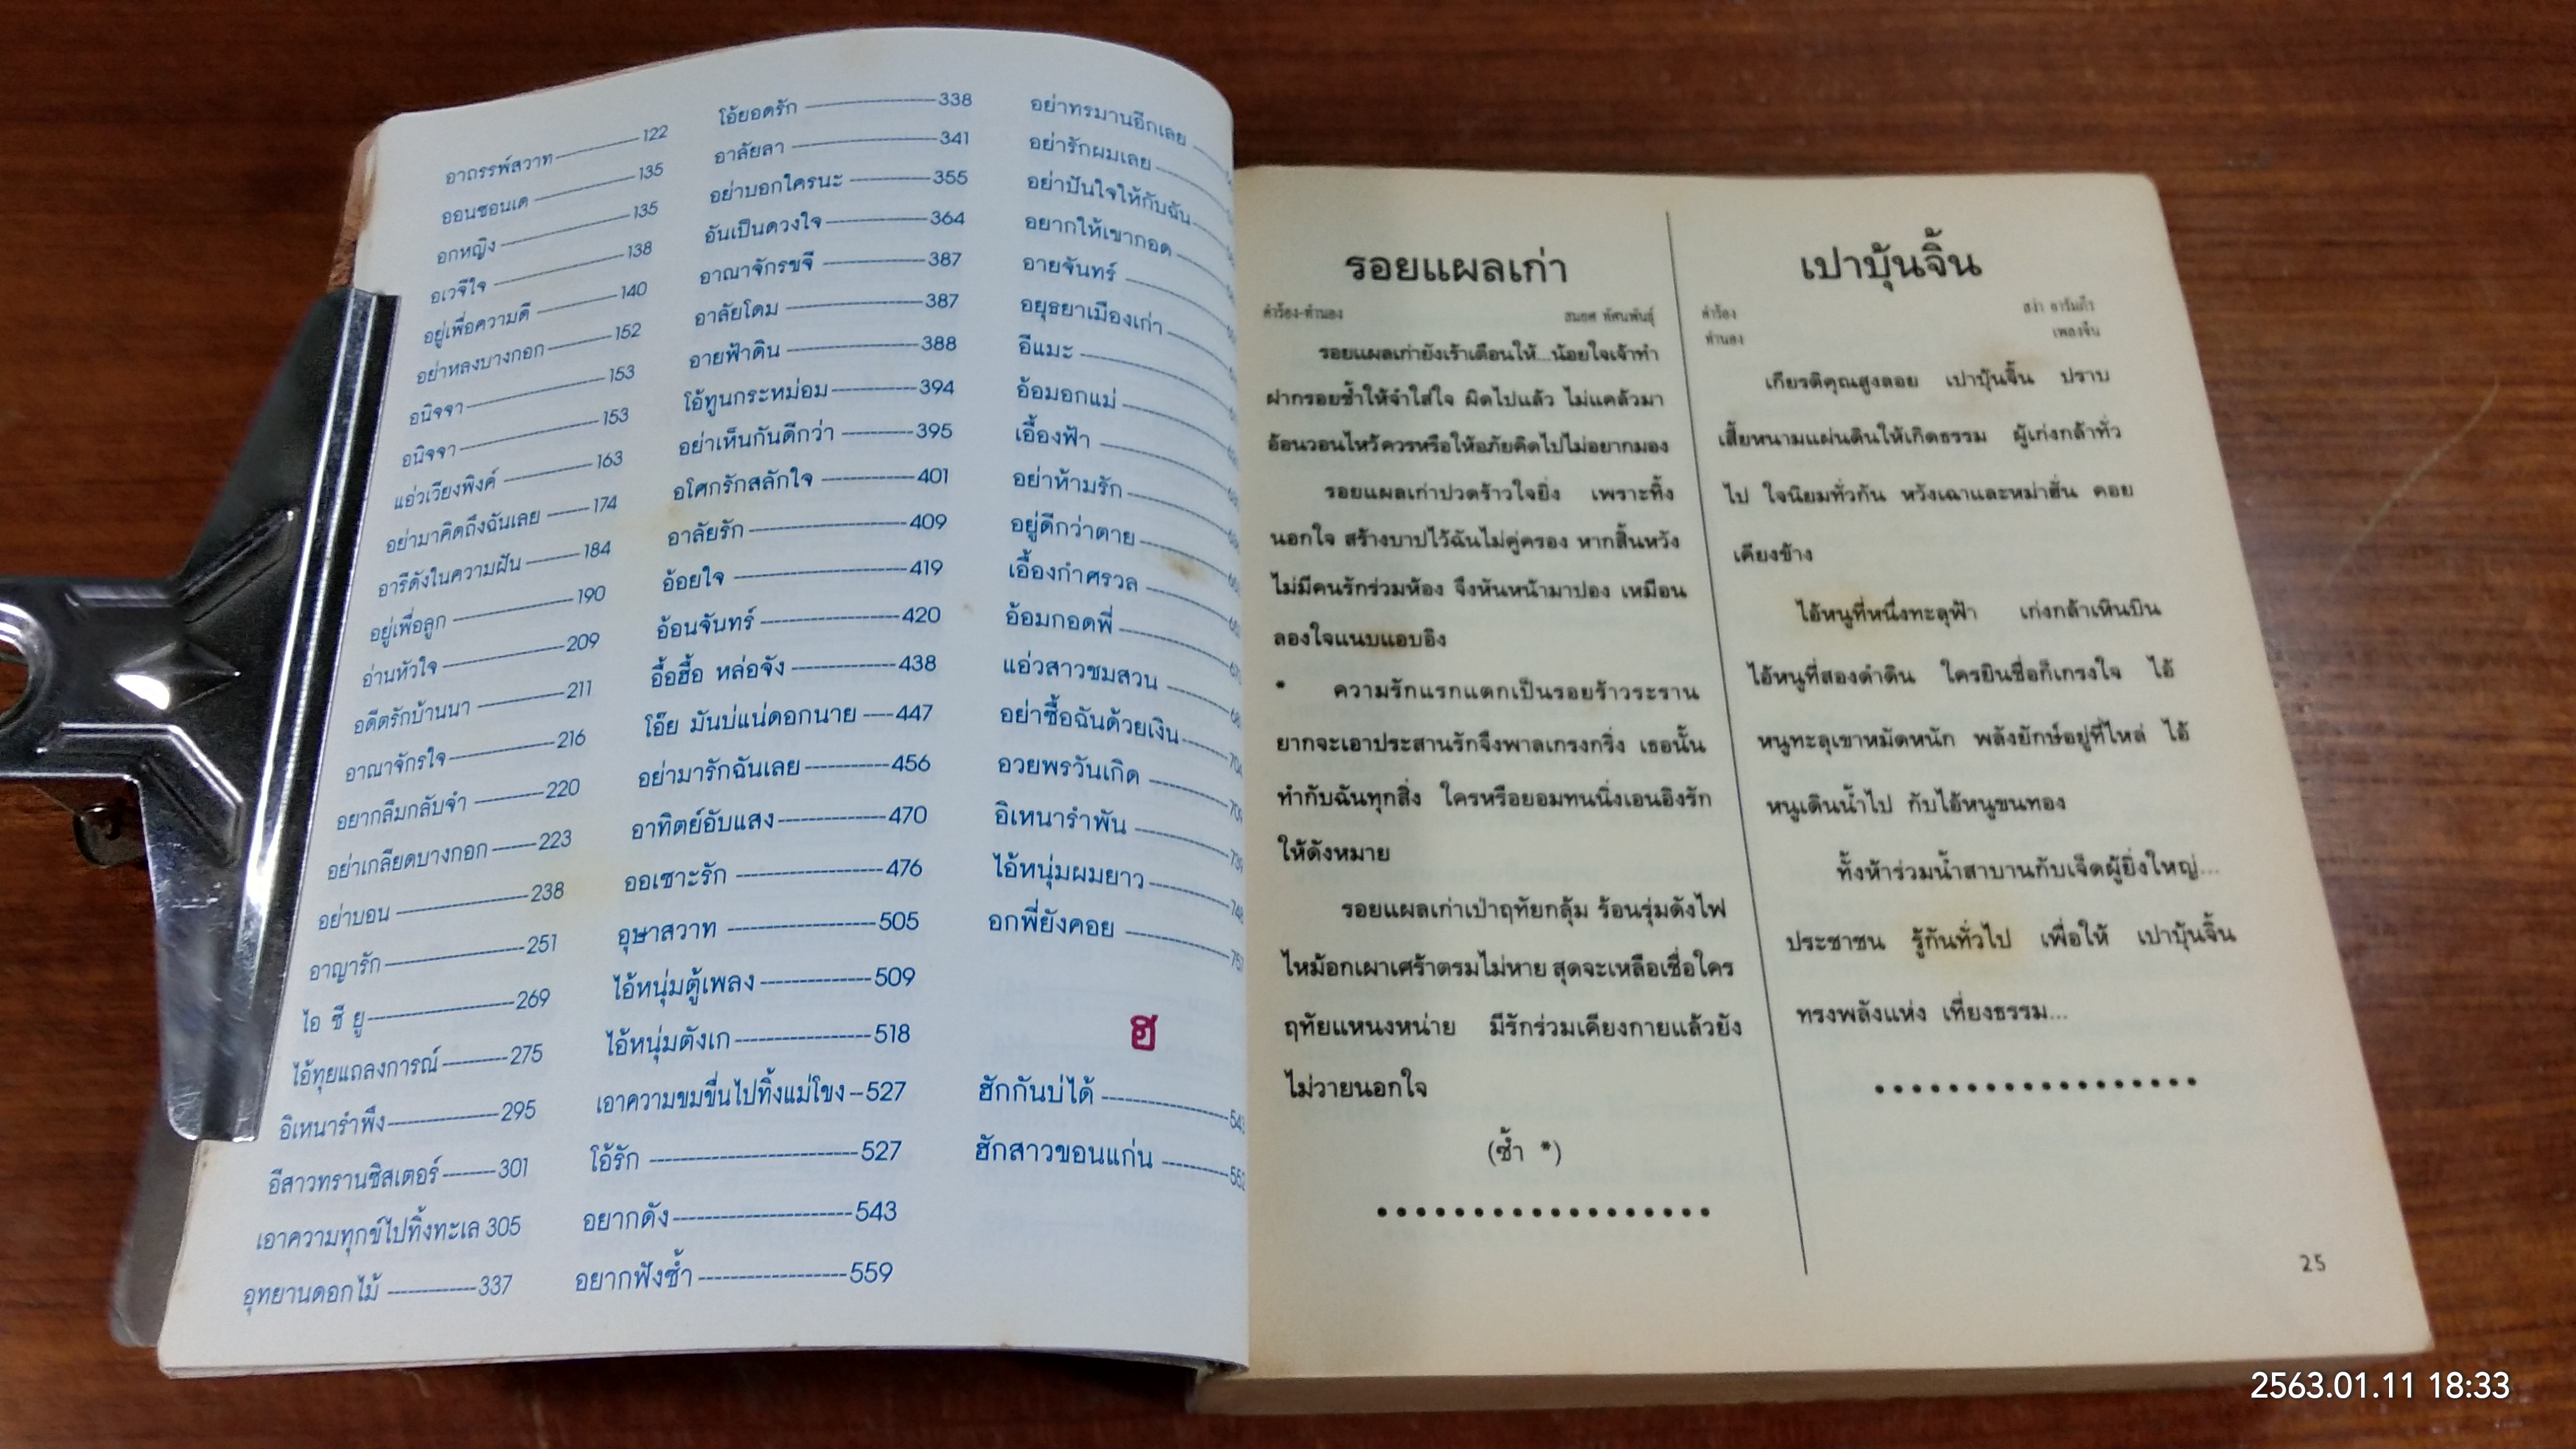 อาถรรพ์สวาท 122
ออนซอนเด 135
อกหญิง 135
อเวจีใจ 138
อยู่เพื่อความดี 140
อย่าหลงบางกอก 152
อนิจจา 153
อนิจจา 153
แอ่วเวียงพิงค์ 163
อย่ามาคิดถึงฉันเลย 174
อารีดังในความฝัน 184
อยู่เพื่อลูก 190
อ่านหัวใจ 209
อดีตรักบ้านนา 211
อาณาจักรใจ 216
อยากลืมกลับจำ 220
อย่าเกลียดบางกอก 223
อย่าบอน 238
อาญารัก 251
ไอ ซี ยู 269
ไอ้ทุยแถลงการณ์ 275
อิเหนารำพึง 295
อีสาวทรานซิสเตอร์ 301
เอาความทุกข์ไปทิ้งทะเล 305
อุทยานดอกไม้ 337
โอ้ยอดรัก 338
อาลัยลา 341
อย่าบอกใครนะ 355
อันเป็นดวงใจ 364
อาณาจักรขจี 387
อาลัยโดม 387
อายฟ้าดิน 388
โอ้ทูนกระหม่อม 394
อย่าเห็นกันดีกว่า 395
อโศกรักสลักใจ 401
อาลัยรัก 409
อ้อยใจ 419
อ้อนจันทร์ 420
อื้อฮื้อ หล่อจัง 438
โอ๊ย มันบ่แน่ดอกนาย 447
อย่ามารักฉันเลย 456
อาทิตย์อับแสง 470
ออเซาะรัก 476
อุษาสวาท 505
ไอ้หนุ่มตู้เพลง 509
ไอ้หนุ่มตังเก 518
เอาความขมขื่นไปทิ้งแม่โขง 527
โอ้รัก 527
อยากดัง 543
อยากฟังซ้ำ 559
อย่าทรมานอีกเลย
อย่ารักผมเลย
อย่าปันใจให้กับฉัน
อยากให้เขากอด
อายจันทร์
อยุธยาเมืองเก่า
อีแมะ
อ้อมอกแม่
เอื้องฟ้า
อย่าห้ามรัก
อยู่ดีกว่าตาย
เอื้องกำศรวล
อ้อมกอดพี่
แอ่วสาวชมสวน
อย่าซื้อฉันด้วยเงิน 704
อวยพรวันเกิด 709
อิเหนารำพัน 739
ไอ้หนุ่มผมยาว 748
อกพี่ยังคอย
ฮ
ฮักกันบ่ได้
ฮักสาวขอนแก่น 552
รอยแผลเก่า
คำร้อง-ทำนอง สมยศ ทัศนพันธุ์
รอยแผลเก่ายังเร้าเตือนให้...น้อยใจเจ้าทำ
ฝากรอยช้ำให้จำใส่ใจ ผิดไปแล้ว ไม่แคล้วมา
อ้อนวอนไหว้ควรหรือให้อภัยคิดไปไม่อยากมอง
รอยแผลเก่าปวดร้าวใจยิ่ง เพราะทิ้ง
นอกใจ สร้างบาปไว้ฉันไม่คู่ครอง หากสิ้นหวัง
ไม่มีคนรักร่วมห้อง จึงหันหน้ามาปอง เหมือน
ลองใจแนบแอบอิง
* ความรักแรกแตกเป็นรอยร้าวระราน
ยากจะเอาประสานรักจึงพาลเกรงกริ่ง เธอนั้น
ทำกับฉันทุกสิ่ง ใครหรือยอมทนนิ่งเอนอิงรัก
ให้ดังหมาย
รอยแผลเก่าเป่าฤทัยกลุ้ม ร้อนรุ่มดังไฟ
ไหม้อกเผาเศร้าตรมไม่หาย สุดจะเหลือเชื่อใคร
ฤทัยแหนงหน่าย มีรักร่วมเคียงกายแล้วยัง
ไม่วายนอกใจ
(ซ้ำ *)
เปาบุ้นจิ้น
คำร้อง สง่า อารัมภีร
ทำนอง เพลงจีน
เกียรติคุณสูงลอย เปาบุ้นจิ้น ปราบ
เสี้ยหนามแผ่นดินให้เกิดธรรม ผู้เก่งกล้าทั่ว
ไป ใจนิยมทั่วกัน หวังเฉาและหม่าฮั่น คอย
เคียงข้าง
ไอ้หนูที่หนึ่งทะลุฟ้า เก่งกล้าเหินบิน
ไอ้หนูที่สองดำดิน ใครยินชื่อก็เกรงใจ ไอ้
หนูทะลุเขาหมัดหนัก พลังยักษ์อยู่ที่ไหล่ ไอ้
หนูเดินน้ำไป กับไอ้หนูขนทอง
ทั้งห้าร่วมน้ำสาบานกับเจ็ดผู้ยิ่งใหญ่...
ประชาชน รู้กันทั่วไป เพื่อให้ เปาบุ้นจิ้น
ทรงพลังแห่ง เที่ยงธรรม...
25
2563.01.11 18:33